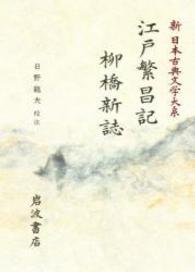 新日本古典文学大系
江戸繁昌記
柳橋新誌
日野龍夫 校注
岩波書店